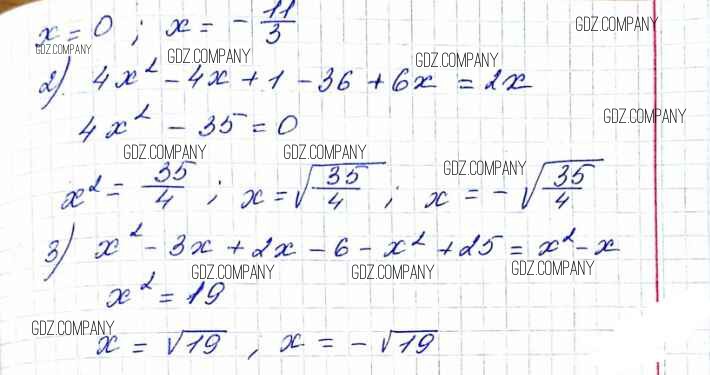 x = 0 ; x = - 11/3
GDZ.COMPANY GDZ.COMPANY GDZ.COMPANY
2) 4x² - 4x + 1 - 36 + 6x = 2x
GDZ.COMPANY
4x² - 35 = 0
GDZ.COMPANY
GDZ.COMPANY GDZ.COMPANY GDZ.COMPANY
x² = 35/4 ; x = √(35/4) ; x = - √(35/4)
3) x² - 3x + 2x - 6 - x² + 25 = x² - x
GDZ.COMPANY GDZ.COMPANY GDZ.COMPANY
x² = 19
GDZ.COMPANY
x = √19 , x = - √19